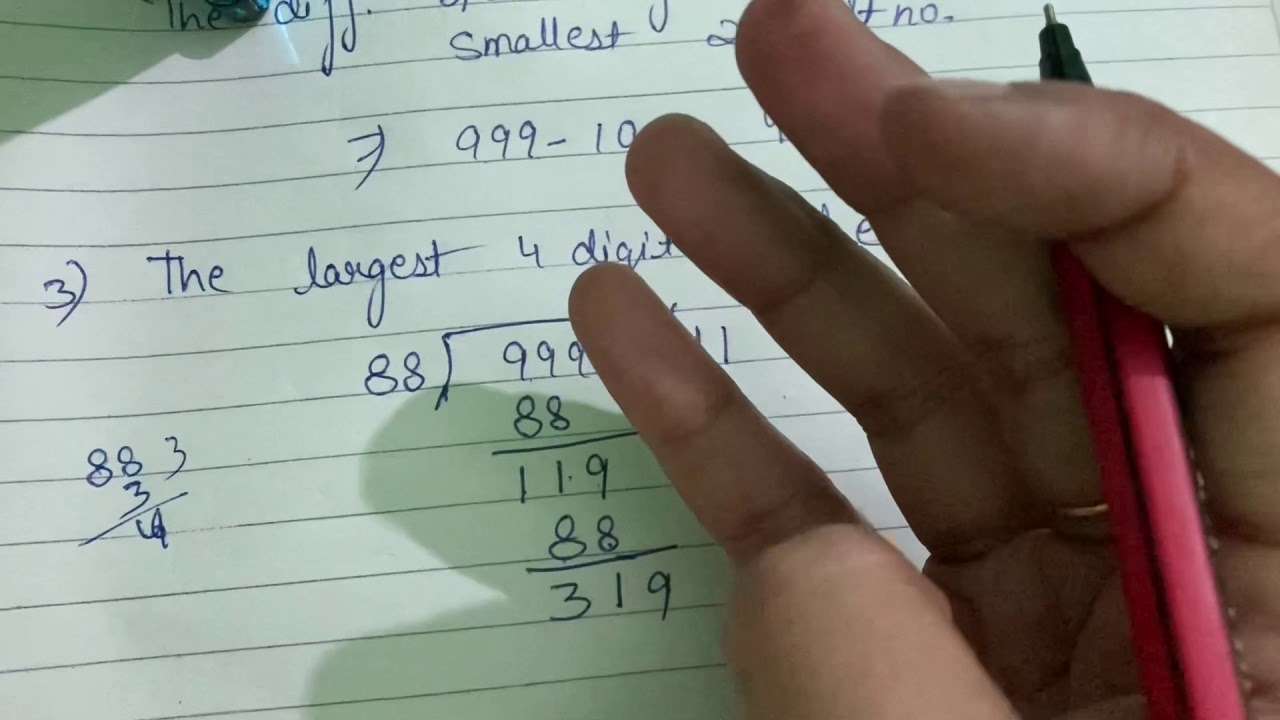 The diff.
Smallest 2 no.
⇒ 999 - 10
3) The largest 4 digit
88 999 11
88
119
88 3
3
88
319